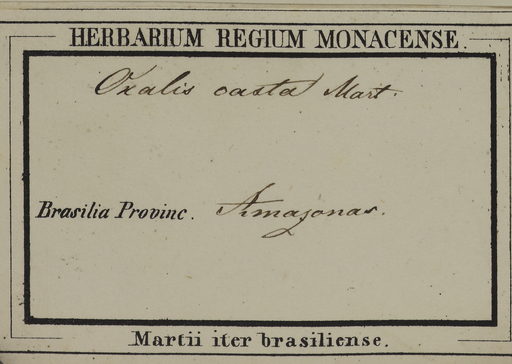 HERBARIUM REGIUM MONACENSE.
Oxalis casta Mart.
Brasilia Provinc. Amazonas.
Martii iter brasiliense.